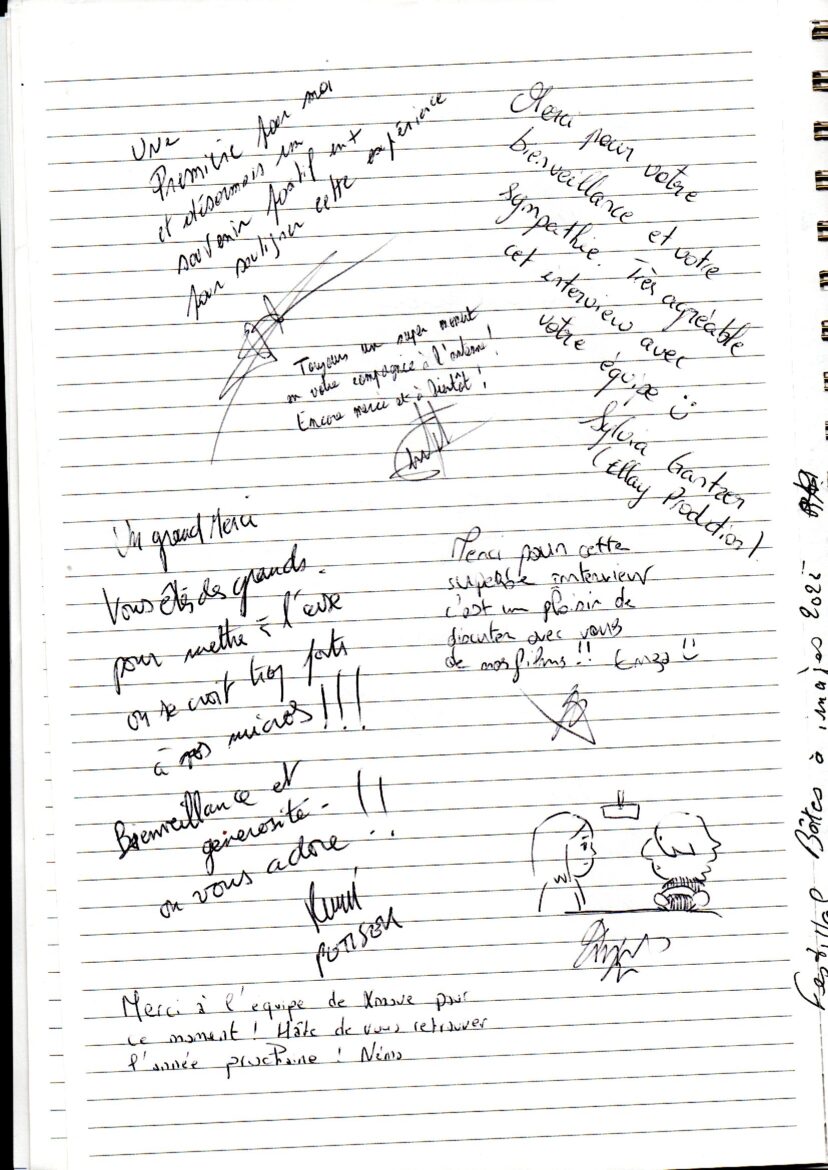 Une
Première pour moi
et désormais un
souvenir positif
pour souligner cette expérience
Merci pour votre
bienveillance et votre
sympathie. Très agréable
cet interview avec
votre équipe
Sylvia
Production)
Toujours un super moment
en votre compagnie à l'antenne !
Encore merci et à bientôt !
Un grand Merci
Vous êtes des grands.
pour mettre à l'aise
on se croit trop forts
à vos micros !!!
Bienveillance et
générosité - !!
on vous adore
POTISEK
Merci pour cette
superbe interview
c'est un plaisir de
discuter avec vous
de nos films !! Enzo
Merci à l'equipe de Xmove pour
ce moment ! Hâte de vous retrouver
l'année prochaine ! Némo
Festival Boîtes à images